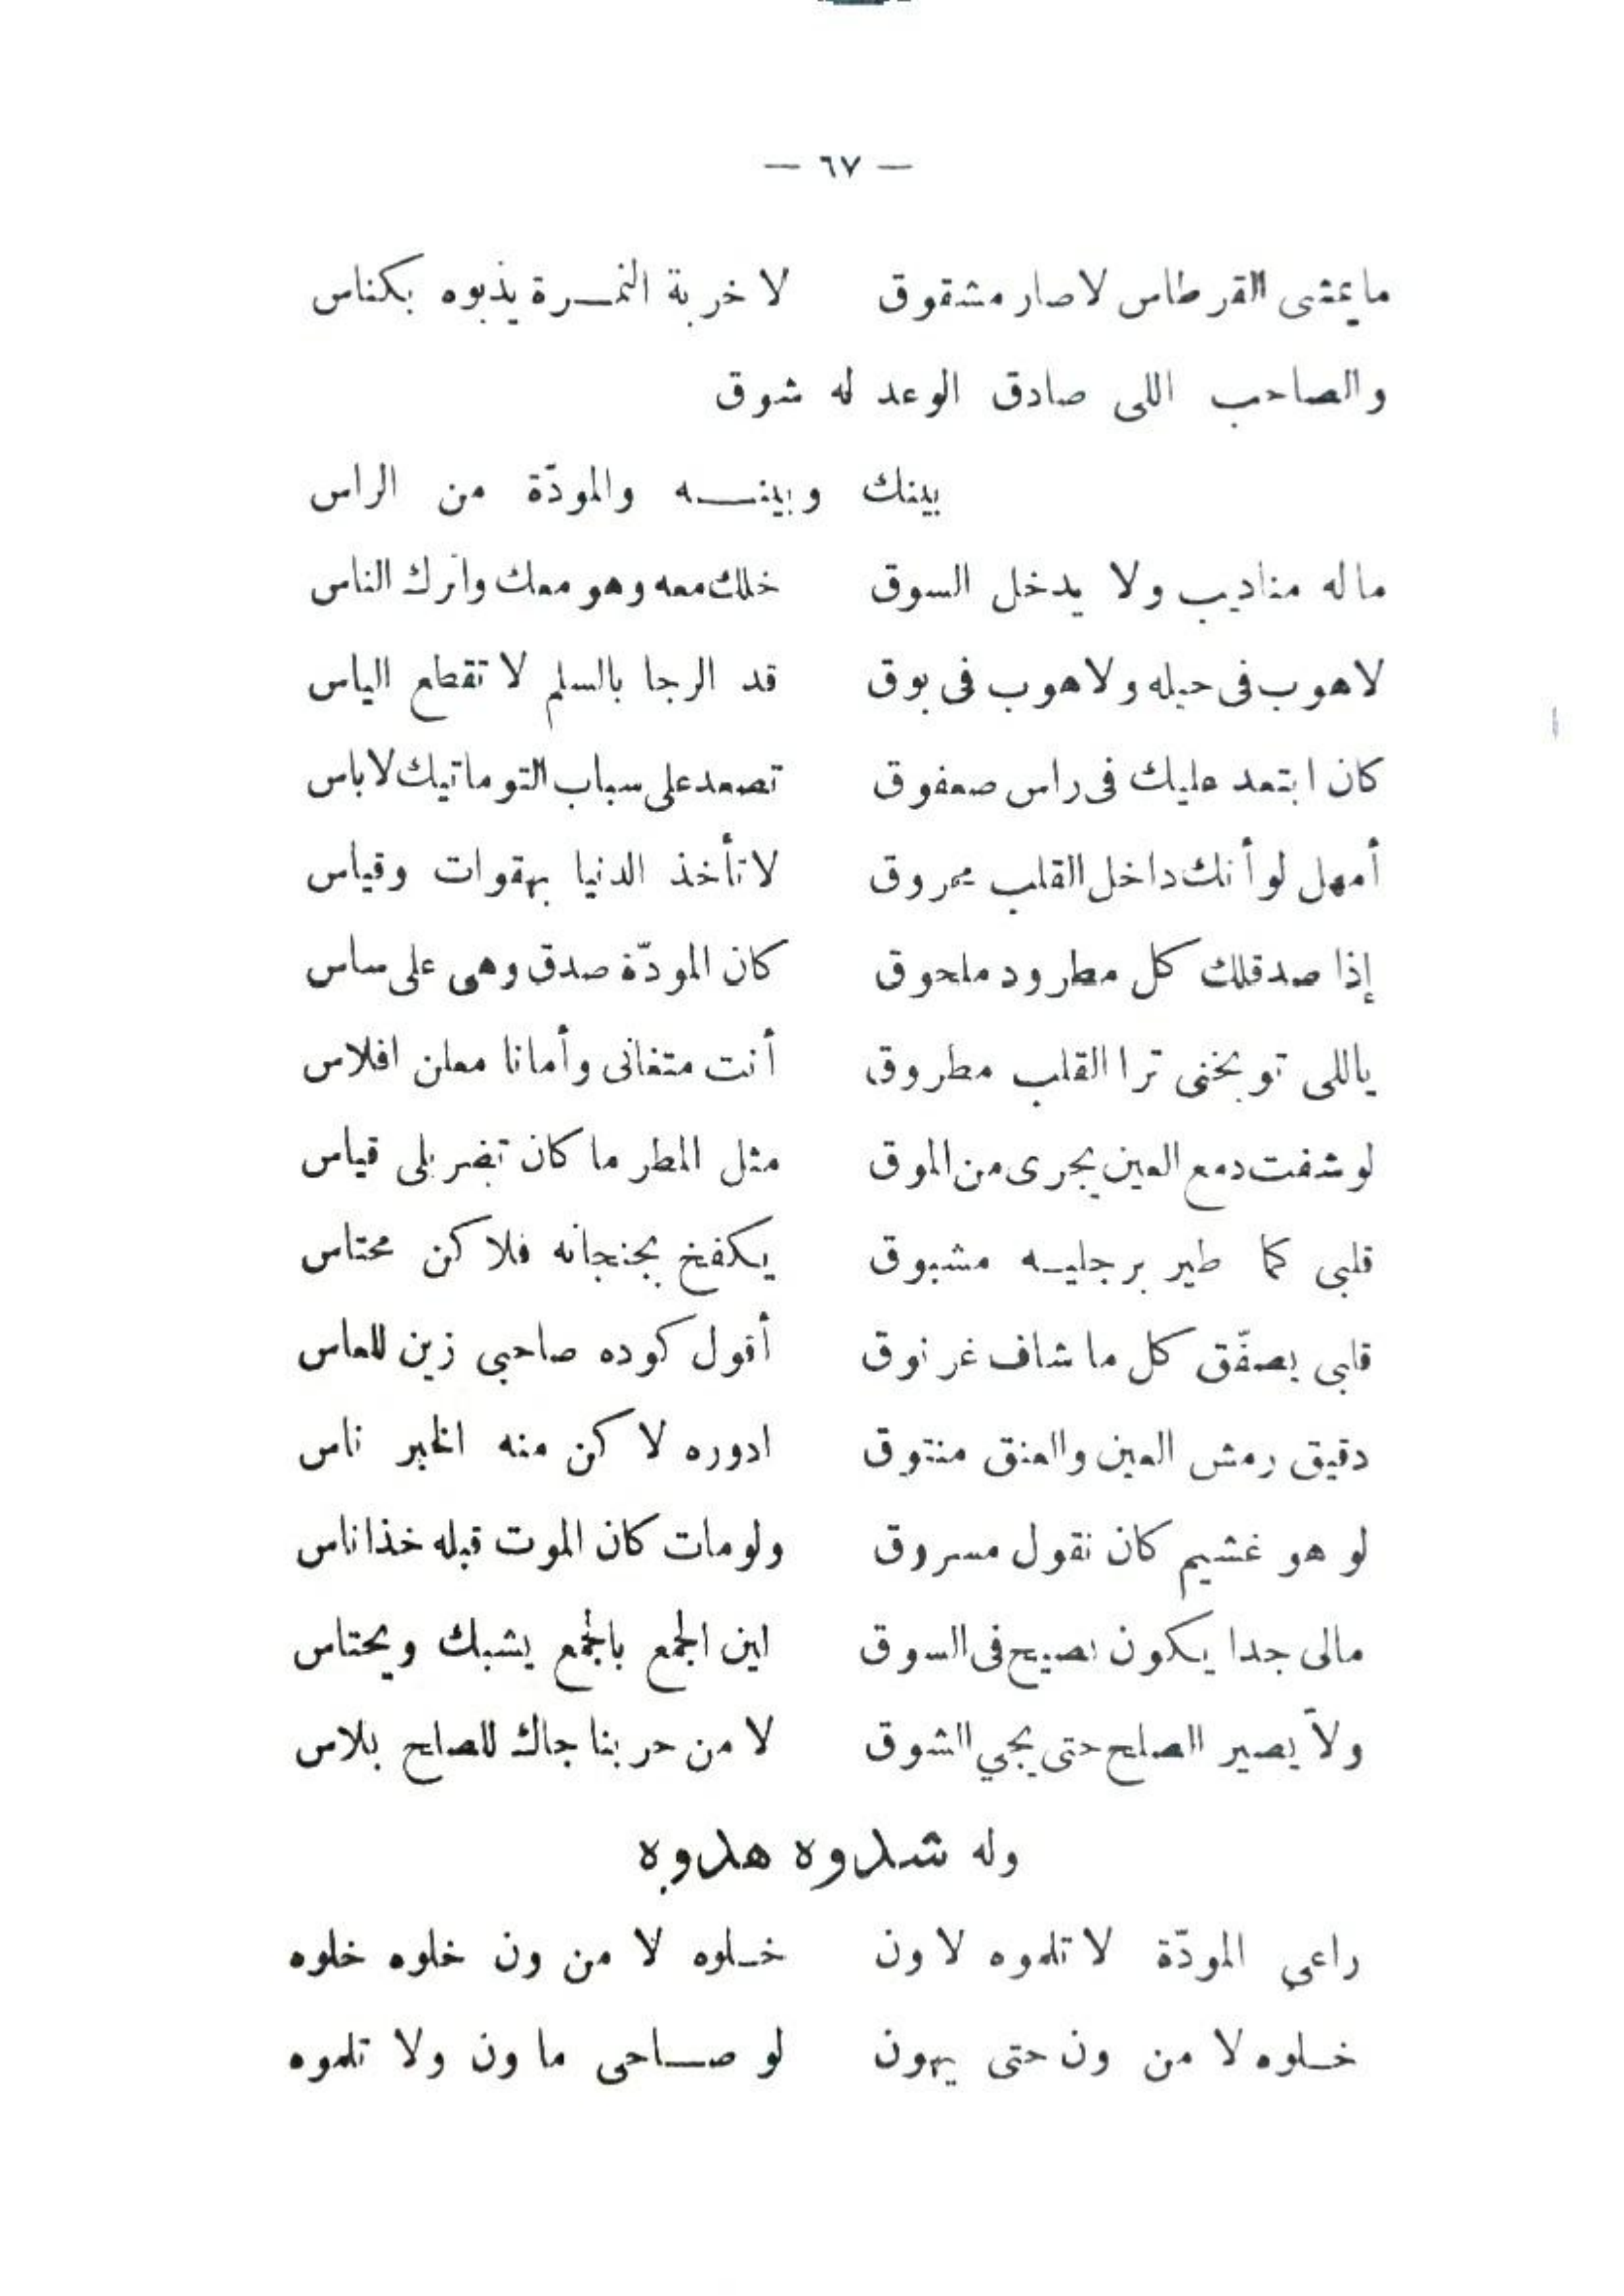 — ٦٧ —
ما يمشى القرطاس لا صار مشقوق لا خربة النمـرة يذبوه بكناس
والصاحب اللى صادق الوعد له شوق
بينك وبينـه والمودّة من الراس
ماله مناديب ولا يدخل السوق خلك معه وهو معك واترك الناس
لا هوب فى حيله ولا هوب فى بوق قد الرجا بالسلم لا تقطع الياس
كان ابتعد عليك فى راس صعفوق تصعد على سباب التوماتيك لاباس
أمهل لو أنك داخل القلب محروق لا تأخذ الدنيا بهقوات وقياس
إذا صدقلك كل مطرود ملحوق كان المودّة صدق وهى على ساس
ياللى توبخنى ترا القلب مطروق أنت متغانى وأمانا معلن افلاس
لو شفت دمع العين يجرى من الموق مثل المطر ما كان تضربلى قياس
قلبى كما طير برجليـه مشبوق يكفخ بجنحانه فلا كن محتاس
قلبى يصفّق كل ما شاف غرنوق أقول كوده صاحبى زين للعاس
دقيق رمش العين والعنق منتوق ادوره لا كن منه الخبر ناس
لو هو غشيم كان نقول مسروق ولو مات كان الموت قبله خذا ناس
مالى جدا يكون نصيح فى السوق لين الجمع بالجمع يشبك ويحتاس
ولاّ يصير الصلح حتى يجي الشوق لا من حربنا جاك للصلح بلاس
وله شدوه هدوه
راعي المودّة لا تلموه لا ون خـلوه لا من ون خلوه خلوه
خـلوه لا من ون حتى يهون لو صـاحبى ما ون ولا تلموه